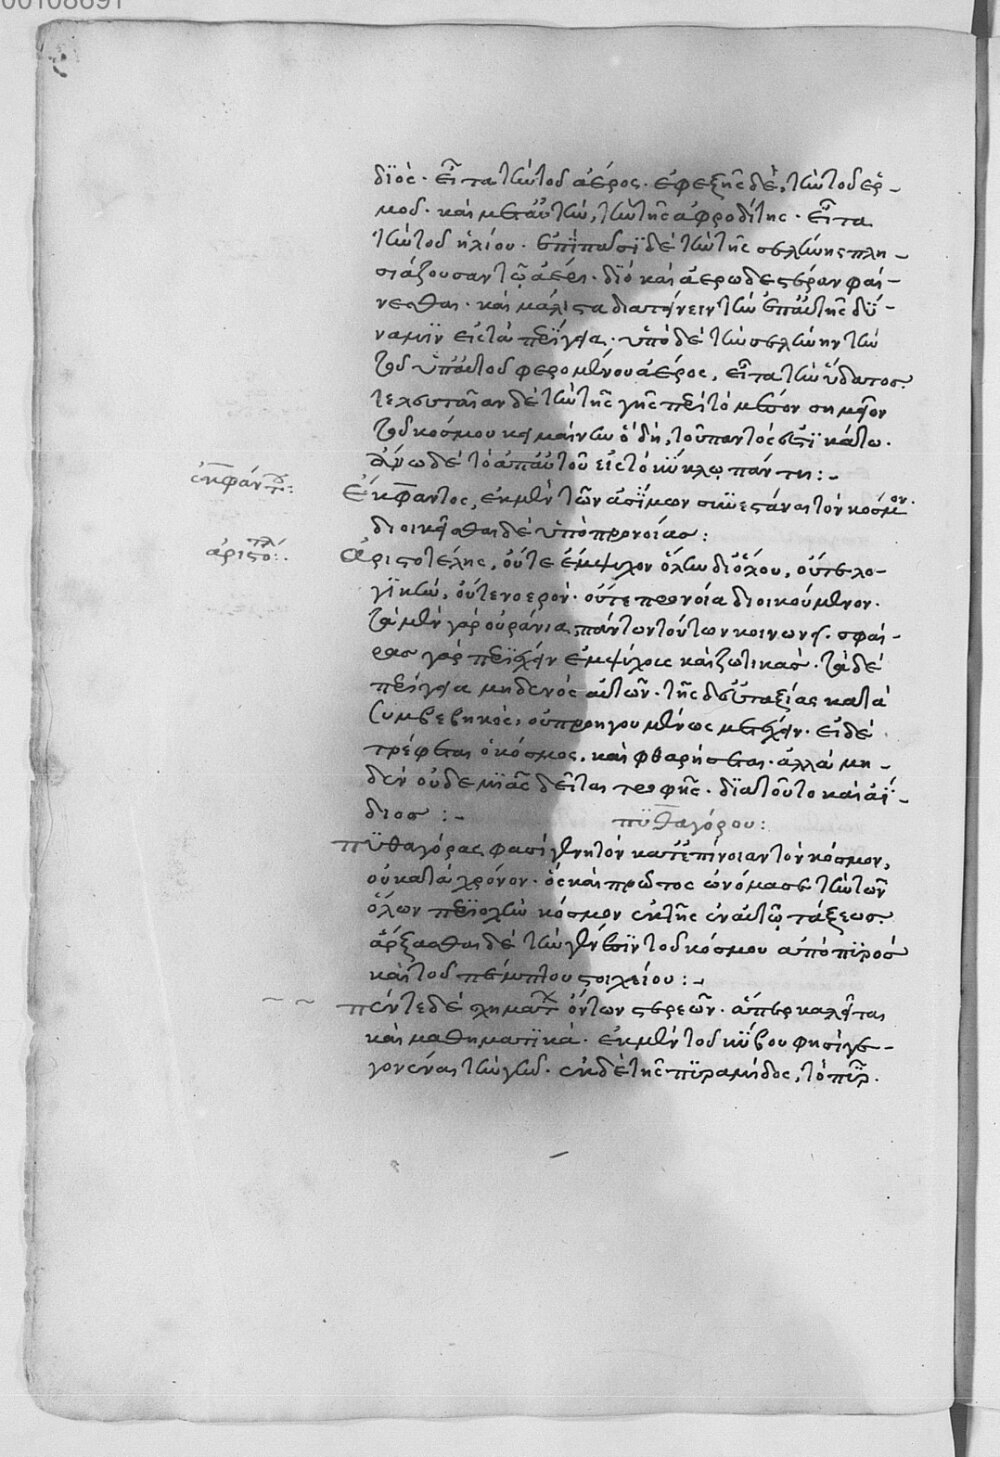 00108691
διος· εἶτα τὴν τοῦ ἀέρος· ἐφεξῆς δὲ, τὴν τοῦ ἑρ-
μοῦ· καὶ μετ' αὐτὴν, τὴν τῆς ἀφροδίτης· εἶτα
τὴν τοῦ ἡλίου· ἐπὶ πᾶσι δὲ τὴν τῆς σελήνης πλη-
σιάζουσαν τῷ ἀέρι· διὸ καὶ ἀερωδεστέραν φαί-
νεσθαι· καὶ μάλιστα διατείνειν τὴν ἀπ' αὐτῆς δύ-
ναμιν εἰς τὰ περίγεια· ὑπὸ δὲ τὴν σελήνην τὴν
τοῦ ὑπ' αὐτοῦ φερομένου ἀέρος, εἶτα τὴν ὕδατος.
τελευταίαν δὲ τὴν τῆς γῆς περὶ τὸ μέσον σημεῖον
τοῦ κόσμου κειμένην ὃ δὴ, τοῦ παντός ἐστι κάτω.
ἄνω δὲ τὸ ἀπ' αὐτοῦ εἰς τὸ κύκλῳ πάντη:-
ἐκφάντου:
Ἔκφαντος, ἐκ μὲν τῶν ἀτόμων συνεστάναι τὸν κόσμον.
διοικεῖσθαι δὲ ὑπὸ προνοίας:
ἀριστοτέλ:
Ἀριστοτέλης, οὔτε ἔμψυχον ὅλην δι' ὅλου, οὔτε λο-
γικὴν, οὔτε νοερὸν· οὔτε προνοία διοικούμενον.
τὰ μὲν γὰρ οὐράνια πάντων τούτων κοινωνεῖ. σφαί-
ρας γὰρ περιέχειν ἐμψύχους καὶ ζωτικὰς· τὰ δὲ
περίγεια μηδενὸς αὐτῶν· τῆς δ' εὐταξίας κατὰ
συμβεβηκὸς, οὐ προηγουμένως μετέχειν. εἰ δὲ
τρέφεται ὁ κόσμος, καὶ φθαρήσεται· ἀλλὰ μη-
δὲν οὐδεμιᾶς δεῖται τροφῆς· διὰ τοῦτο καὶ ἀΐ-
διος:-
πυθαγόρου:
πυθαγόρας φασὶ γενητὸν κατ' ἐπίνοιαν τὸν κόσμον,
οὐ κατὰ χρόνον· ὃς καὶ πρῶτος ὠνόμασε τὴν τῶν
ὅλων περιοχὴν κόσμον ἐκ τῆς ἐν αὐτῷ τάξεως.
ἄρξασθαι δὲ τὴν γένεσιν τοῦ κόσμου ἀπὸ πυρὸς
καὶ τοῦ πέμπτου στοιχείου:-
πέντε δὲ σχημάτων ὄντων στερεῶν· ἅπερ καλεῖται
καὶ μαθηματικὰ· ἐκ μὲν τοῦ κύβου φησὶ γε-
γονέναι τὴν γῆν· ἐκ δὲ τῆς πυραμίδος, τὸ πῦρ.